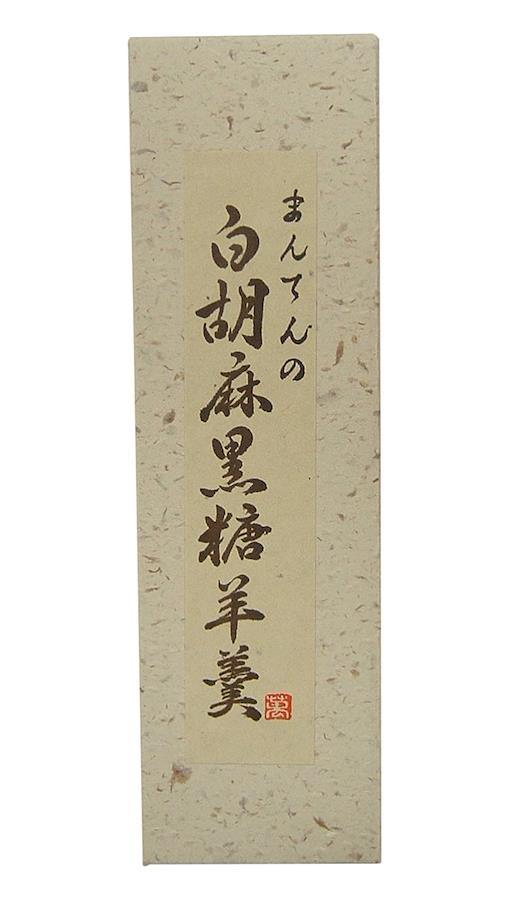 まんてんの
白胡麻黒糖羊羹
萬